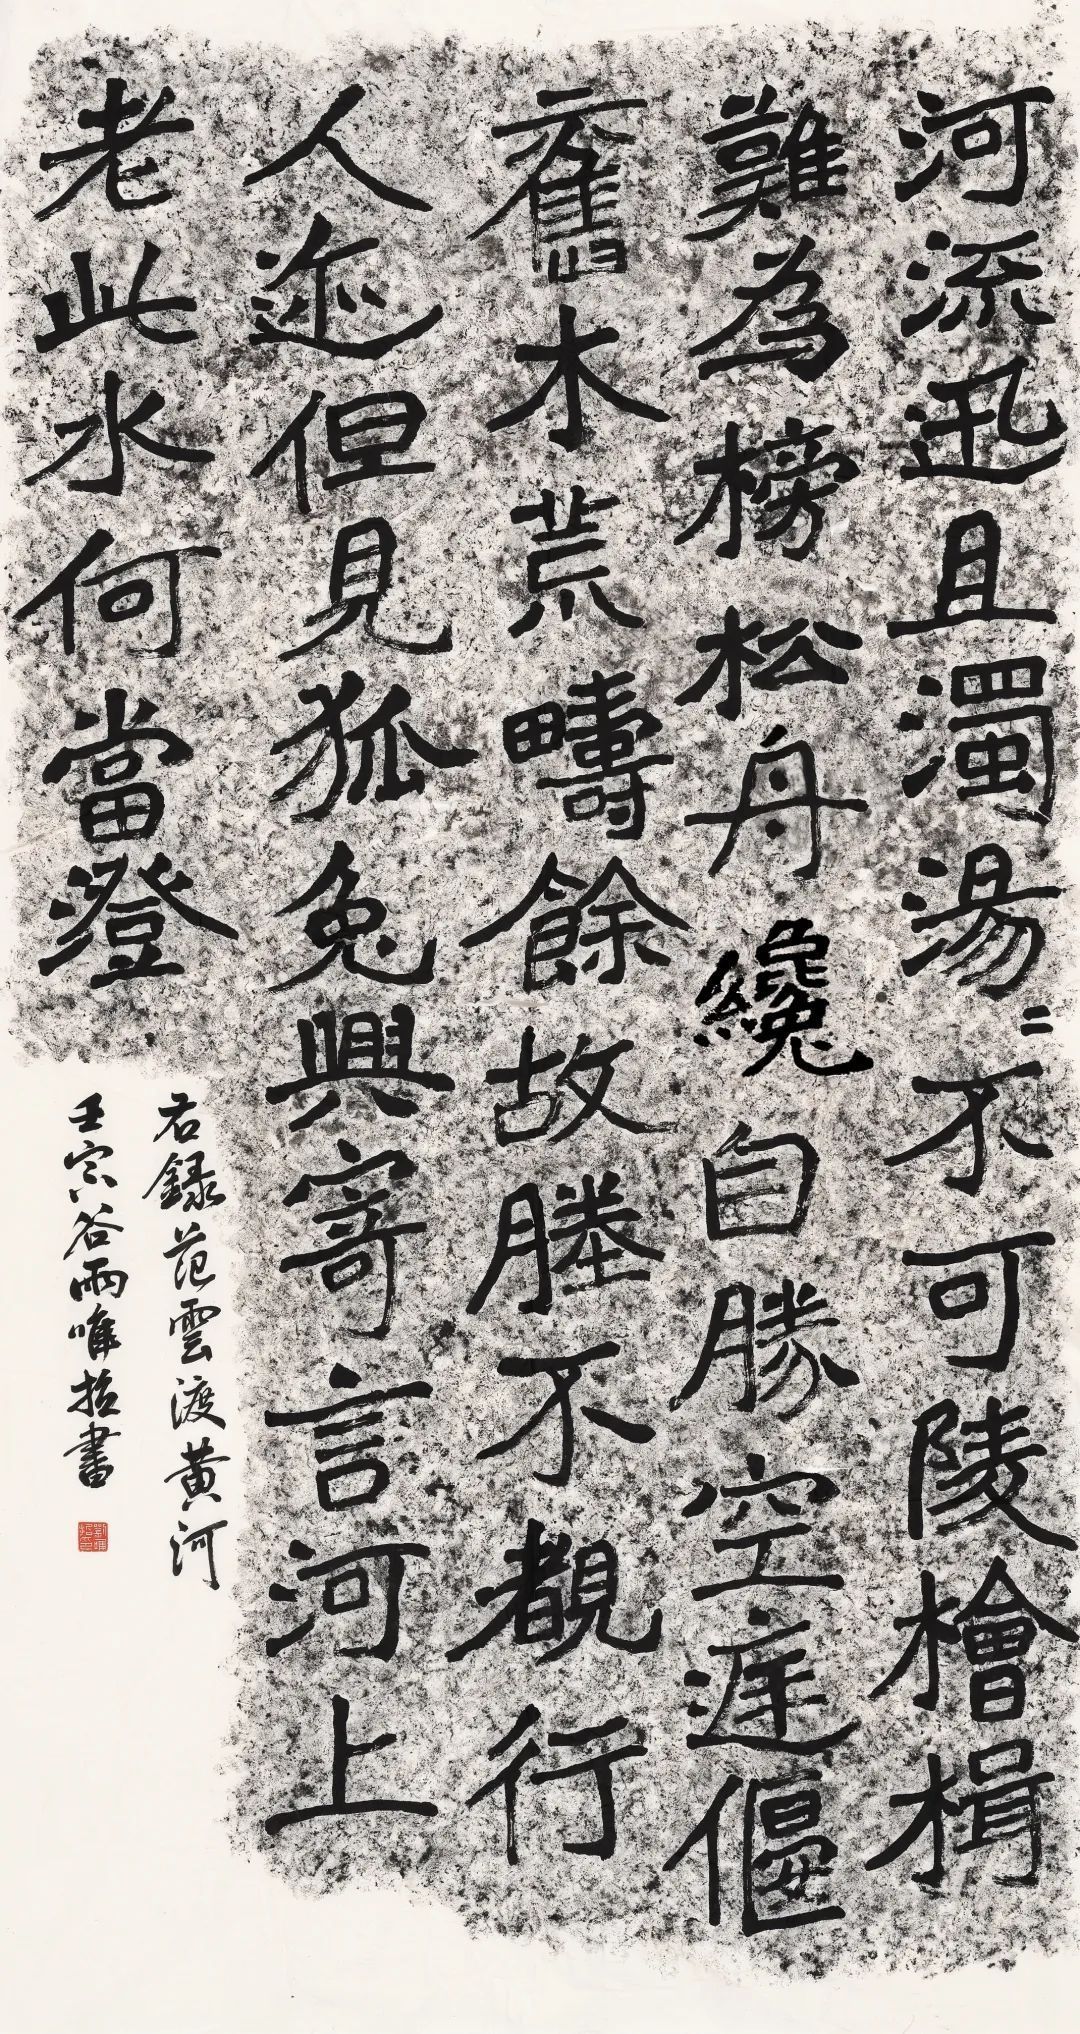 河流迅且濁湯〻不可陵檜楫
難為榜松舟纔自勝空庭偃
舊木荒疇餘故塍不覩行
人迹但見狐兔興寄言河上
老此水何當澄
右錄范雲渡黄河
壬寅谷雨唯哲書